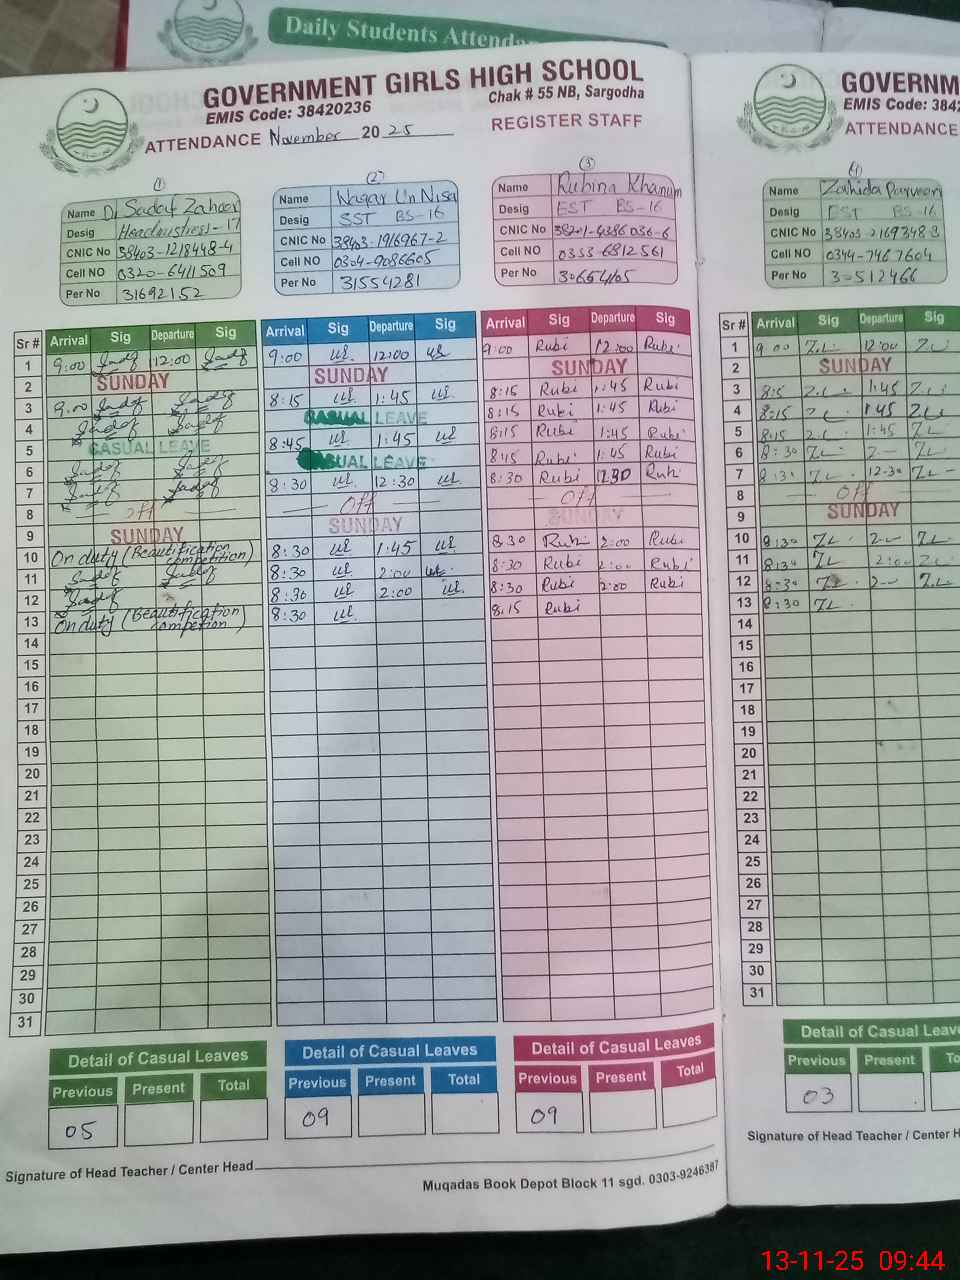 Daily Students Attenda
GOVERNMENT GIRLS HIGH SCHOOL
EMIS Code: 38420236
Chak # 55 NB, Sargodha
ATTENDANCE November 2025
REGISTER STAFF
GOVERNM
EMIS Code: 3842
ATTENDANCE
(1)
Name Dr Sadaf Zaheer
Desig Headmistress-17
CNIC No 38403-1218448-4
Cell NO 0320-6411509
Per No 31692152
(2)
Name Nagar Un Nisa
Desig SST BS-16
CNIC No 38403-1916967-2
Cell NO 0304-9086605
Per No 31554281
(3)
Name Rubina Khanum
Desig EST BS-16
CNIC No 38201-4386036-6
Cell NO 0333-6812561
Per No 30664105
(4)
Name Zahida Parveen
Desig EST BS-16
CNIC No 38403-2169348-8
Cell NO 0344-7467604
Per No 30512466
Sr # Arrival Sig Departure Sig Arrival Sig Departure Sig Arrival Sig Departure Sig
1 9:00 Sadf 12:00 Sadf 9:00 12:00 9:00 Rubi 12:00 Rubi
2 SUNDAY SUNDAY SUNDAY
3 9:00 Sadf Sadf 8:15 1:45 8:15 Rubi 1:45 Rubi
4 Sadf Sadf CASUAL LEAVE 8:15 Rubi 1:45 Rubi
5 CASUAL LEAVE 8:45 1:45 8:15 Rubi 1:45 Rubi
6 Sadf Sadf CASUAL LEAVE 8:15 Rubi 1:45 Rubi
7 Sadf Sadf 8:30 12:30 8:30 Rubi 12:30 Rubi
8 Off Off Off
9 SUNDAY SUNDAY SUNDAY
10 On duty (Beautification competition) 8:30 1:45 8:30 Rubi 2:00 Rubi
11 Sadf Sadf 8:30 2:00 8:30 Rubi 2:00 Rubi
12 Sadf 8:30 2:00 8:30 Rubi 2:00 Rubi
13 On duty (Beautification competion) 8:30 8:15 Rubi
14
15
16
17
18
19
20
21
22
23
24
25
26
27
28
29
30
31
Sr # Arrival Sig Departure Sig
1 9:00 ZL 12:00 ZL
2 SUNDAY
3 8:15 ZL 1:45 ZL
4 8:15 ZL 1:45 ZL
5 8:15 ZL 1:45 ZL
6 8:30 ZL 2- ZL
7 8:30 ZL 12-30 ZL
8 Off
9 SUNDAY
10 8:30 ZL 2- ZL
11 8:30 ZL 2:00 ZL
12 8:30 ZL 2- ZL
13 8:30 ZL
14
15
16
17
18
19
20
21
22
23
24
25
26
27
28
29
30
31
Detail of Casual Leaves
Previous Present Total
05
Detail of Casual Leaves
Previous Present Total
09
Detail of Casual Leaves
Previous Present Total
09
Detail of Casual Leave
Previous Present To
03
Signature of Head Teacher / Center Head
Muqadas Book Depot Block 11 sgd. 0303-9246387
Signature of Head Teacher / Center H
13-11-25 09:44